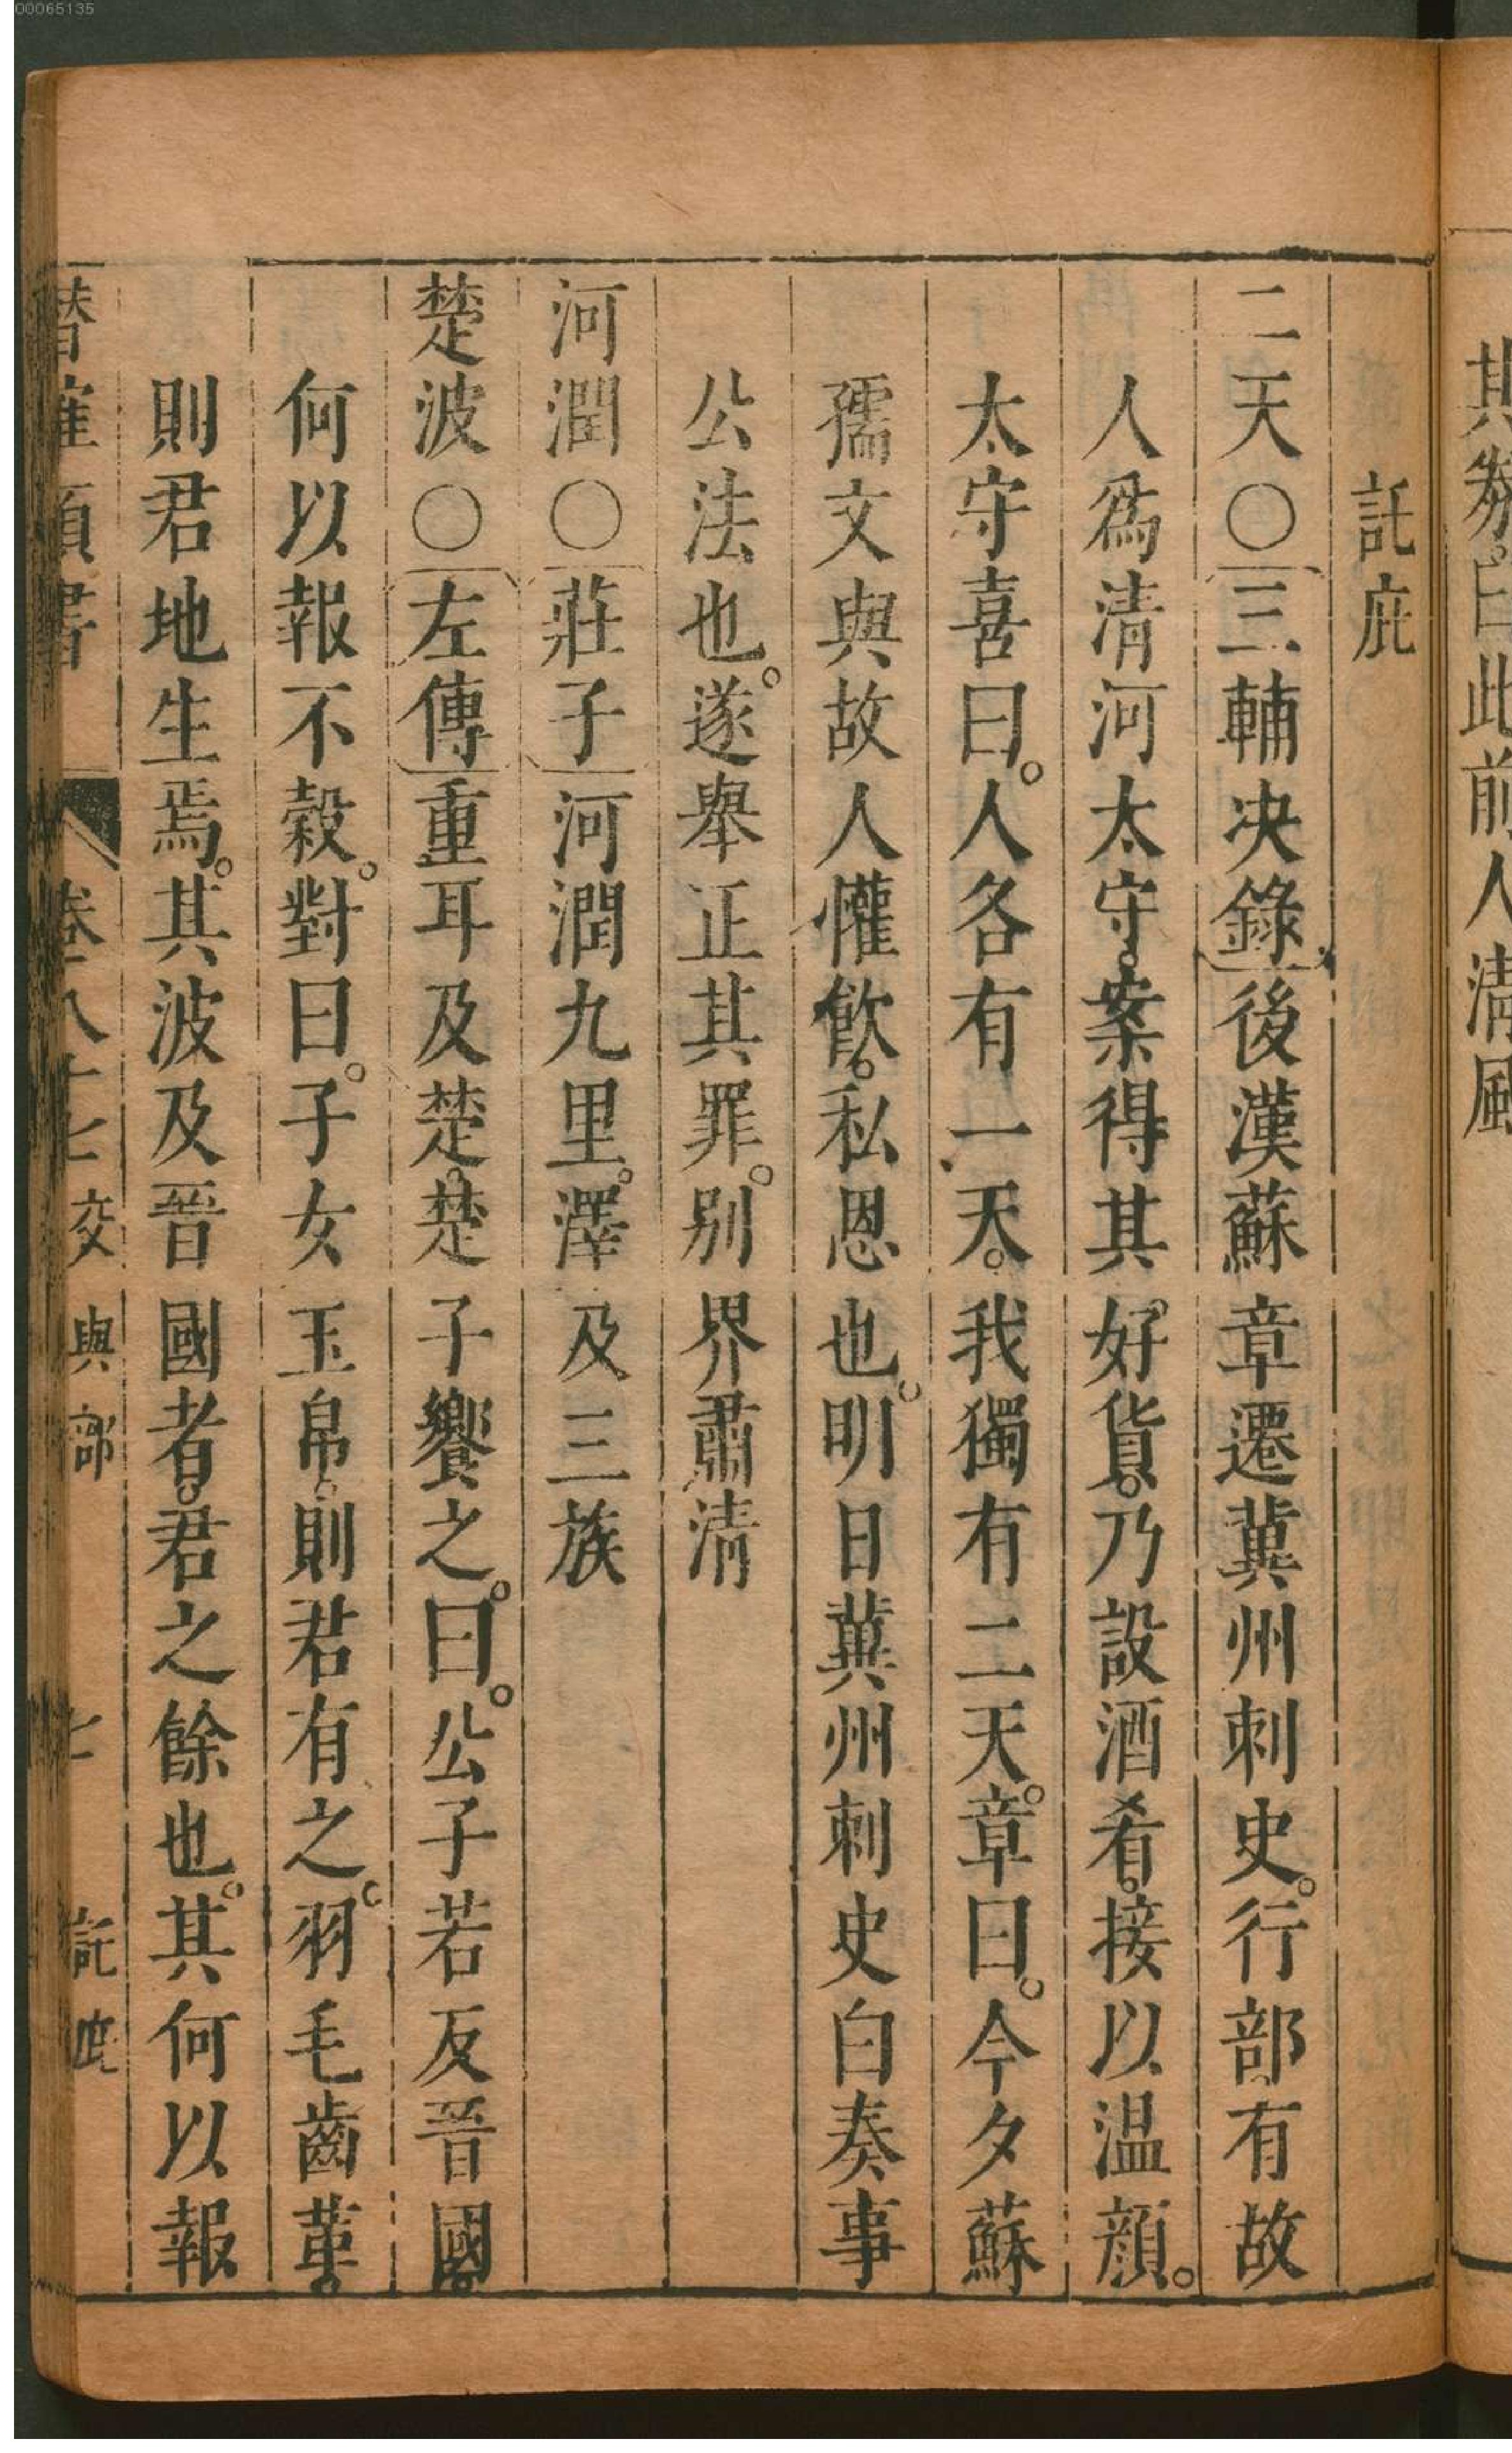 00065135
其剡。曰此前人清風
託庇
二天〇三輔决錄後漢蘇章遷冀州刺史。行部有故
人爲清河太守。案得其好貨。乃設酒肴。接以温顔。
太守喜曰。人各有一天。我獨有二天。章曰。今夕蘇
孺文與故人懽飲。私恩也。明日冀州刺史白奏事
公法也。遂舉正其罪。别界肅清
河潤〇莊子河潤九里。澤及三族
楚波〇左傳重耳及楚。楚子饗之。曰。公子若反晉國。
何以報不穀。對曰。子女玉帛。則君有之。羽毛齒革。
則君地生焉。其波及晉國者。君之餘也。其何以報
潛確類書 卷八十七交與部 七 託庇